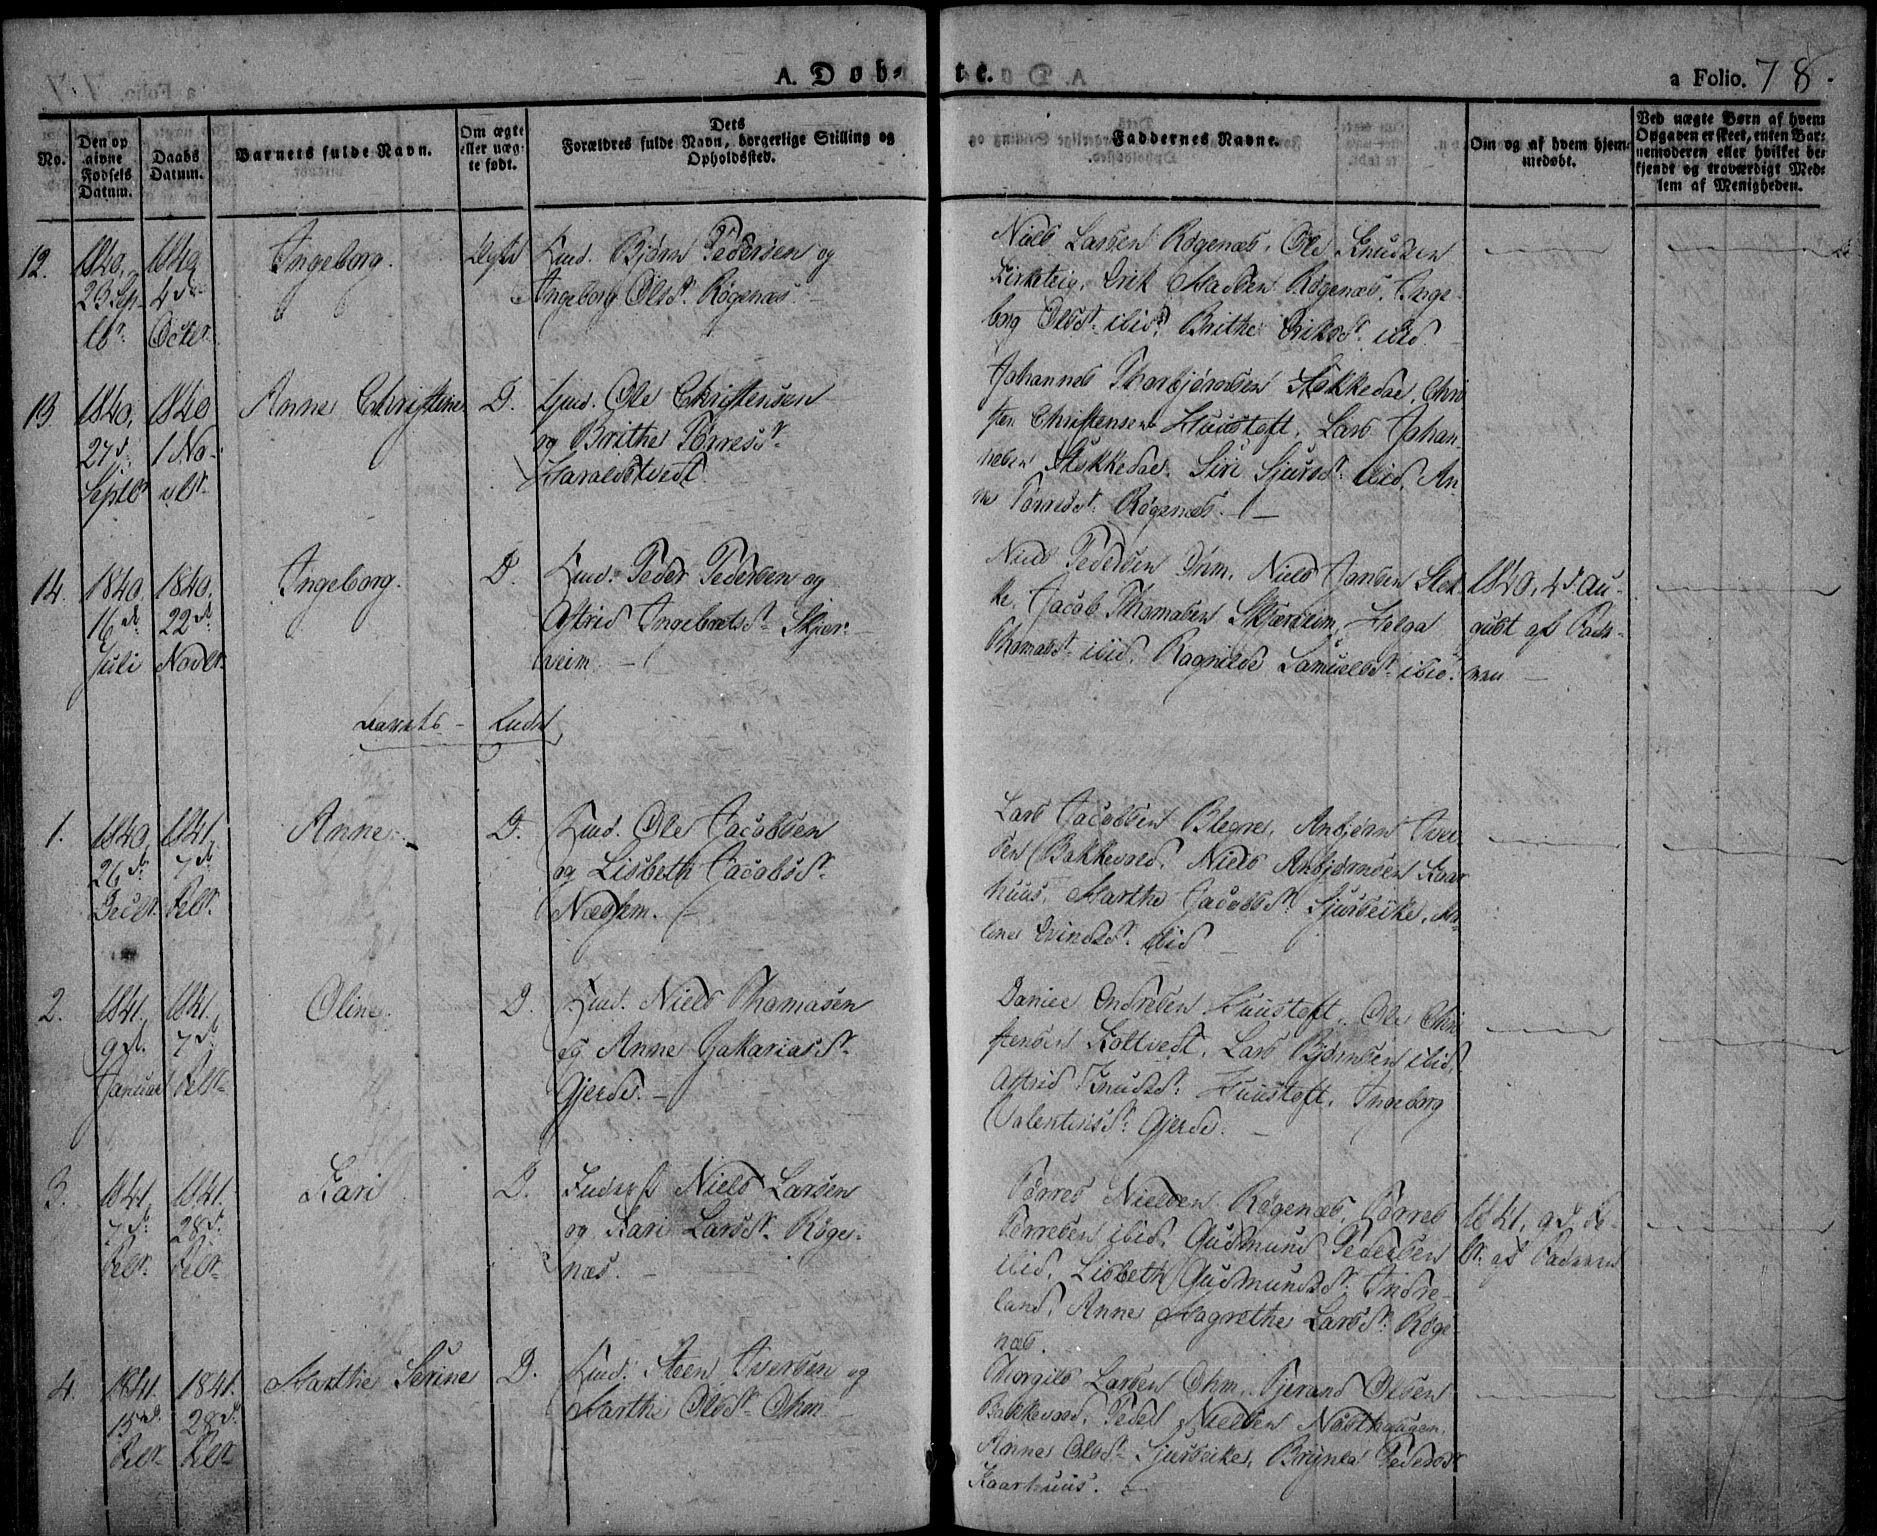 A. Døb-
te.
a Folio. 78.
No.
Den op
givne
Fødsels
Datum.
Daabs
Datum.
Barnets fulde Navn.
Om ægte
eller uæg-
te født.
Dets
Forældres fulde Navn, borgerlige Stilling og
Opholdssted.
Faddernes Navne.
Om og af hvem hjem-
medøbt.
Ved uægte Børn af hvem
Opgaven er skeet, enten Bar-
nemoderen eller hvilket be-
kjendt og troværdigt Med-
lem af Menigheden.
12.
1840,
23 Sep-
tbr.
1840
4de
Octbr.
Ingeborg.
Ægte
Bjørn Pedersen og
Ingeborg Olsdr. Røgenæs.
Niels Larsen Røgenæs, Ole Knudsen
Kirketeig, Erik Madsen Røgenæs, Inge-
borg Olsdr. ibid, Brithe Eriksdr. ibid.
13.
1840,
27d.
Septbr
1840
1 No-
vbr.
Anne Christine
D.
Ole Christensen
og Brithe Tørresdr.
Haraldstvedt.
Johannes Thorbjørnsen Stokkedal, Chri-
sten Christensen Huustoft, Lars Johan-
nesen Stokkedal, Siri Sjursdr. ibid, An-
ne Tørresdr. Røgenæs.
14.
1840.
16d.
Juli
1840.
22d.
Novbr.
Ingeborg.
D.
Peder Pedersen og
Astrid Ingebretsdr. Skjær-
veim.
Niels Pedersen Viim, Niels Jansen Stok-
ke, Jacob Thomasen Skjærveim, Helga
Thomasdr. ibid, Ragnilde Samuelsdr. ibid.
1840, 4d. Au-
gust af Fade-
ren
1.
1840,
26d.
Decbr.
1841.
7d.
Febr.
Anne.
D.
Ole Jacobsen
og Lisbeth Jacobsdr.
Næshem.
Lars Jacobsen Blegne, Anbjørn Iver-
sen Bakkevold, Niels Anbjørnsen Kaar-
huus, Marthe Jacobsdr. Sjurseike, Ma-
lene Eivindsdr. ibid
2.
1841.
9d.
Januar
1841.
7d.
Febr.
Oline.
D.
Niels Thomasen
og Anne Zakariasdr.
Gjerde.
Daniel Endresen Huustoft, Ole Chri-
stensen Koltvedt, Lars Bjørnsen ibid,
Astrid Knudsdr. Huustoft, Ingeborg
Valentinsdr. Gjerde.
3.
1841.
7d.
Febr.
1841.
28d.
Febr.
Kari
D.
Niels Larsen
og Kari Larsdr. Røge-
næs.
Tørres Nielsen Røgenæs, Tørres
Tørresen ibid, Gudmund Pedersen
ibid, Lisbeth Gudmundsdr. Indre-
land, Anne Magrethe Larsdr. Røge-
næs.
1841, 9d. Fe-
br. af Faderen
4.
1841.
15d.
Febr
1841.
28d.
Febr
Marthe Serine
D.
Steen Iversen og
Marthe Olsdr. Ohm
Thorgils Larsen Ohm, Tjerand Olsen
Bakkevold, Peder Nielsen Næsthaugen,
Anne Olsdr. Sjursseike, Brynla Pedersdr
Kaarhuus.